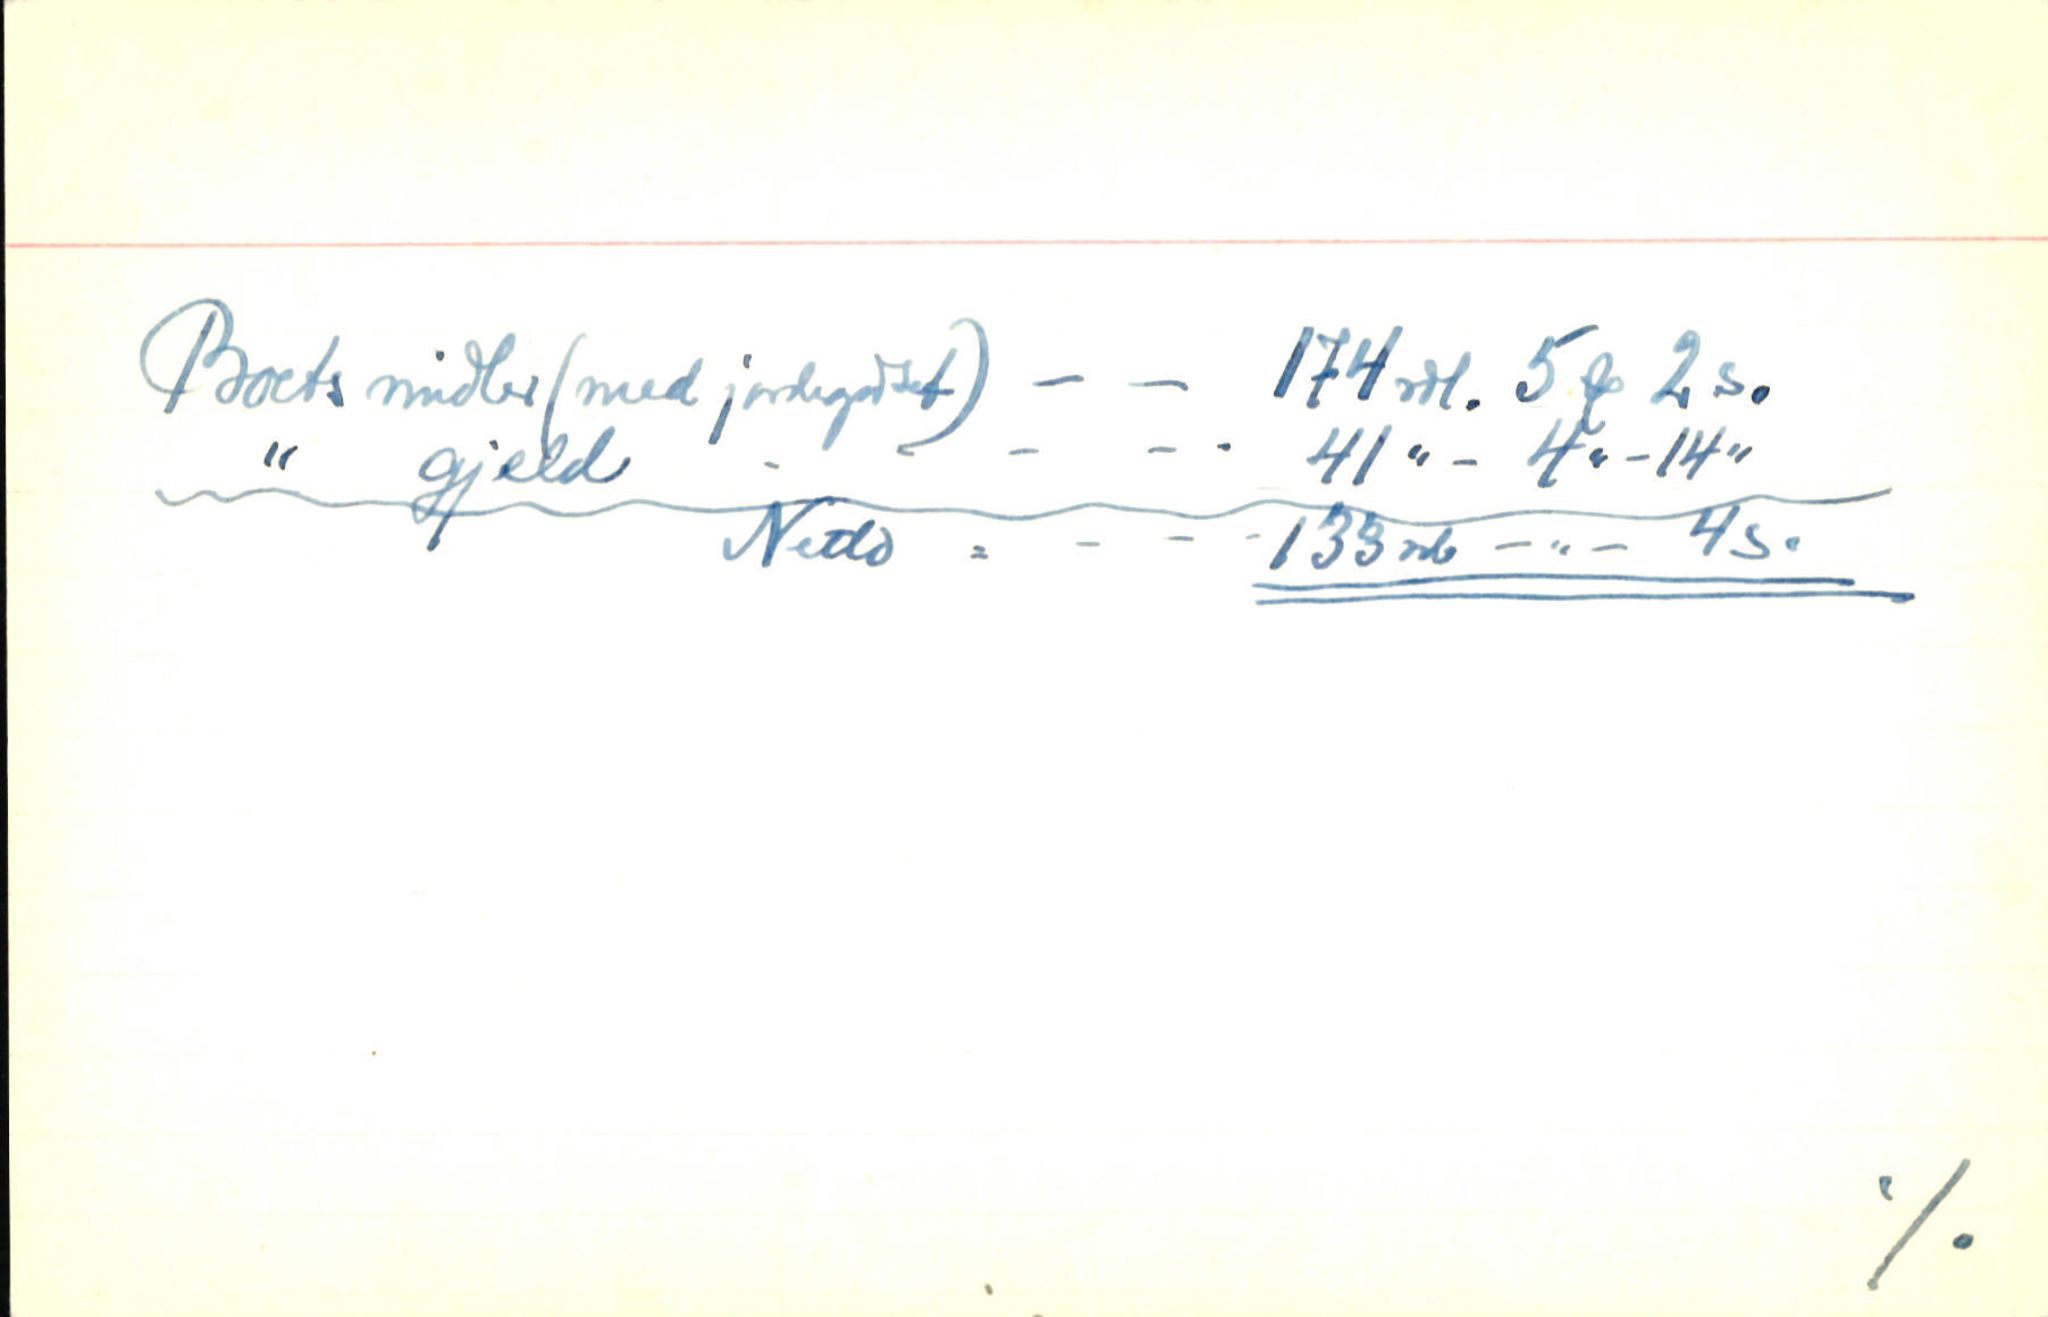 Boets midler (med jordegodset) — — 174 rdl. 5 ƒ 2 s.
" gjeld - - - - - 41 " - 4 " - 14 "
Netto = - - - 133 rdl. — " — 4 s.
./.